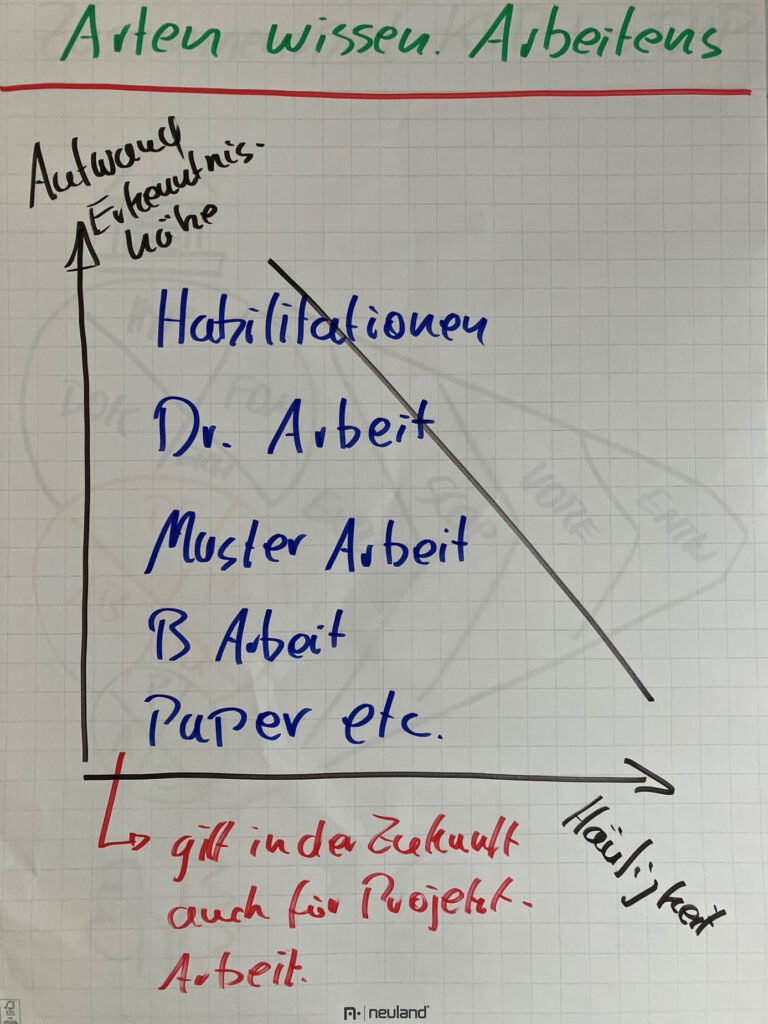 Arten wissen. Arbeitens
Aufwand
Erkenntnis-
höhe
Habilitationen
Dr. Arbeit
Master Arbeit
B Arbeit
Paper etc.
Häufigkeit
gilt in der Zukunft
auch für Projekt-
Arbeit.
neuland